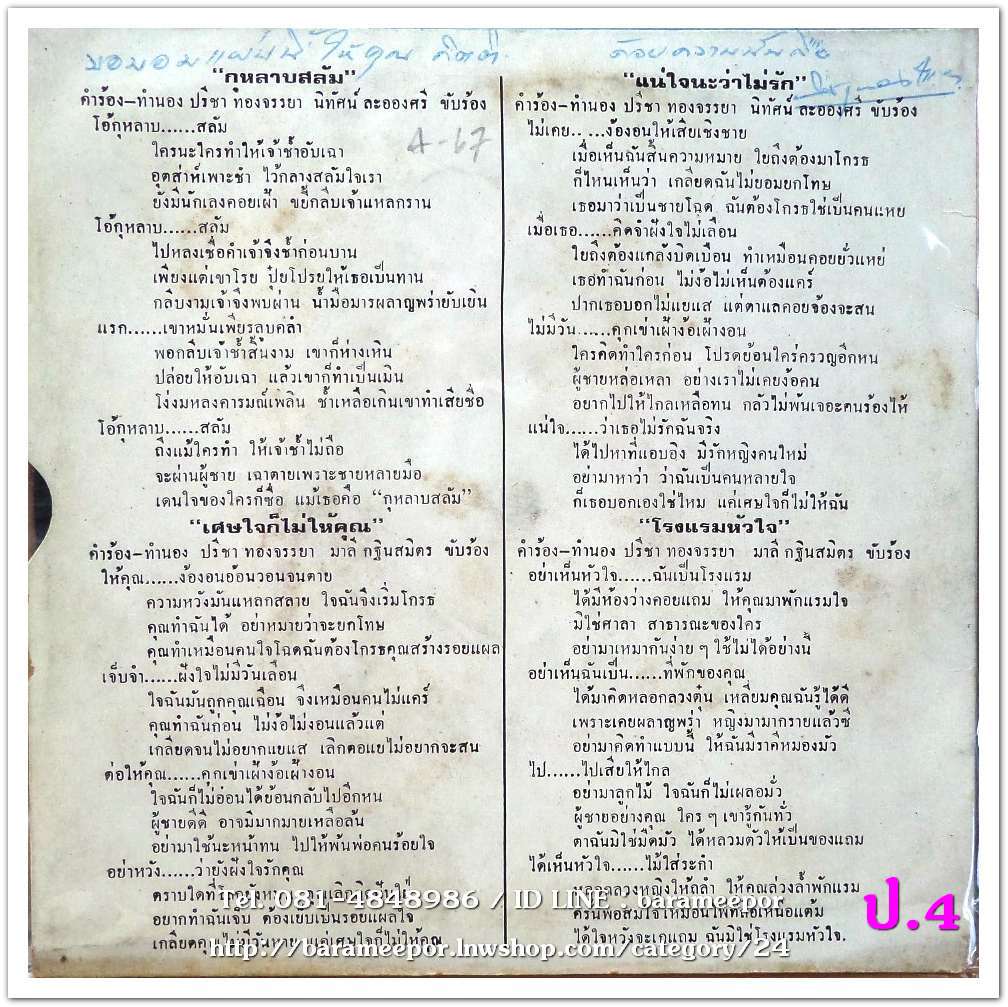 ขอมอบแผ่นนี้ให้คุณ กิตติ ด้วยความนับถือ
"กุหลาบสลัม"
คำร้อง-ทำนอง ปรีชา ทองจรรยา นิทัศน์ ละอองศรี ขับร้อง
A-67
โอ้กุหลาบ......สลัม
ใครนะใครทำให้เจ้าช้ำอับเฉา
อุตส่าห์เพาะชำ ไว้กลางสลัมใจเรา
ยังมีนักเลงคอยเฝ้า ขยี้กลีบเจ้าแหลกราน
โอ้กุหลาบ......สลัม
ไปหลงเชื่อคำเจ้าจึงช้ำก่อนบาน
เพียงแต่เขาโรย ปุ๋ยโปรยให้เธอเป็นทาน
กลีบงามเจ้าจึงพบผ่าน น้ำมือมารผลาญพร่ายับเยิน
แรก......เขาหมั่นเพียรลูบคลำ
พอกลีบเจ้าช้ำสิ้นงาม เขาก็ห่างเหิน
ปล่อยให้อับเฉา แล้วเขาก็ทำเป็นเมิน
โง่งมหลงคารมณ์เพลิน ช้ำเหลือเกินเขาทำเสียชื่อ
โอ้กุหลาบ......สลัม
ถึงแม้ใครทำ ให้เจ้าช้ำไม่ถือ
จะผ่านผู้ชาย เฉาตายเพราะชายหลายมือ
เดนใจของใครก็ชื่อ แม้เธอคือ "กุหลาบสลัม"
"เศษใจก็ไม่ให้คุณ"
คำร้อง-ทำนอง ปรีชา ทองจรรยา มาลี กฐินสมิตร ขับร้อง
ให้คุณ......ง้องอนอ้อนวอนจนตาย
ความหวังมันแหลกสลาย ใจฉันจึงเริ่มโกรธ
คุณทำฉันได้ อย่าหมายว่าจะยกโทษ
คุณทำเหมือนคนใจโฉดฉันต้องโกรธคุณสร้างรอยแผล
เจ็บจำ......ฝังใจไม่มีวันเลือน
ใจฉันมันถูกคุณเฉือน จึงเหมือนคนไม่แคร์
คุณทำฉันก่อน ไม่ง้อไม่งอนแล้วแต่
เกลียดจนไม่อยากแยแส เลิกตอแยไม่อยากจะสน
ต่อให้คุณ......คุกเข่าเฝ้าง้อเฝ้างอน
ใจฉันก็ไม่อ่อนได้ย้อนกลับไปอีกหน
ผู้ชายดีดี อาจมีมากมายเหลือล้น
อย่ามาใช้นะหน้าทน ไปให้พ้นพ่อคนร้อยใจ
อย่าหวัง......ว่ายังฝังใจรักคุณ
ตราบใดที่โลกยังหมุน
อยากทำฉันเจ็บ ต้องเย็บเป็นรอยแผลใจ
เกลียดคุณไม่มีวันหาย แค่เศษใจก็ไม่ให้คุณ
"แน่ใจนะว่าไม่รัก"
คำร้อง-ทำนอง ปรีชา ทองจรรยา นิทัศน์ ละอองศรี ขับร้อง
ไม่เคย.. ....ง้องอนให้เสียเชิงชาย
เมื่อเห็นฉันสิ้นความหมาย ใยถึงต้องมาโกรธ
ก็ไหนเห็นว่า เกลียดฉันไม่ยอมยกโทษ
เธอมาว่าเป็นชายโฉด ฉันต้องโกรธใช่เป็นคนแหย
เมื่อเธอ......คิดจำฝังใจไม่เลือน
ใยถึงต้องแกล้งบิดเบือน ทำเหมือนคอยยั่วแหย่
เธอทำฉันก่อน ไม่ง้อไม่เห็นต้องแคร์
ปากเธอบอกไม่แยแส แต่ตาแลคอยจ้องจะสน
ไม่มีวัน......คุกเข่าเฝ้าง้อเฝ้างอน
ใครคิดทำใครก่อน โปรดย้อนใคร่ครวญอีกหน
ผู้ชายหล่อเหลา อย่างเราไม่เคยง้อคน
อยากไปให้ไกลเหลือทน กลัวไม่พ้นเจอะคนร้องไห้
แน่ใจ......ว่าเธอไม่รักฉันจริง
ได้ไปหาที่แอบอิง มีรักหญิงคนใหม่
อย่ามาหาว่า ว่าฉันเป็นคนหลายใจ
ก็เธอบอกเองใช่ไหม แค่เศษใจก็ไม่ให้ฉัน
"โรงแรมหัวใจ"
คำร้อง-ทำนอง ปรีชา ทองจรรยา มาลี กฐินสมิตร ขับร้อง
อย่าเห็นหัวใจ......ฉันเป็นโรงแรม
ได้มีห้องว่างคอยแถม ให้คุณมาพักแรมใจ
มิใช่ศาลา สาธารณะของใคร
อย่ามาเหมากันง่าย ๆ ใช้ไม่ได้อย่างนี้
อย่าเห็นฉันเป็น......ที่พักของคุณ
ได้มาคิดหลอกลวงตุ๋น เหลี่ยมคุณฉันรู้ได้ดี
เพราะเคยผลาญพร่ำ หญิงมามากรายแล้วซี
อย่ามาคิดทำแบบนี้ ให้ฉันมีราคีหมองมัว
ไป......ไปเสียให้ไกล
อย่ามาลูกไม้ ใจฉันก็ไม่เผลอมั่ว
ผู้ชายอย่างคุณ ใคร ๆ เขารู้กันทั่ว
ตาฉันมิใช่มืดมัว ได้หลวมตัวให้เป็นของแถม
ได้เห็นหัวใจ......ไม้ไส่ระกำ
หลอกลวงหญิงให้ถลำ ให้คุณล่วงล้ำพักแรม
ครั้นพอสมใจ
ได้ใจหวังจะเคแถม ฉันมิใช่โรงแรมหัวใจ.
Tel. 081-4848986 / ID LINE : barameepor
http://barameepor.lnwshop.com/category/24
ป.4